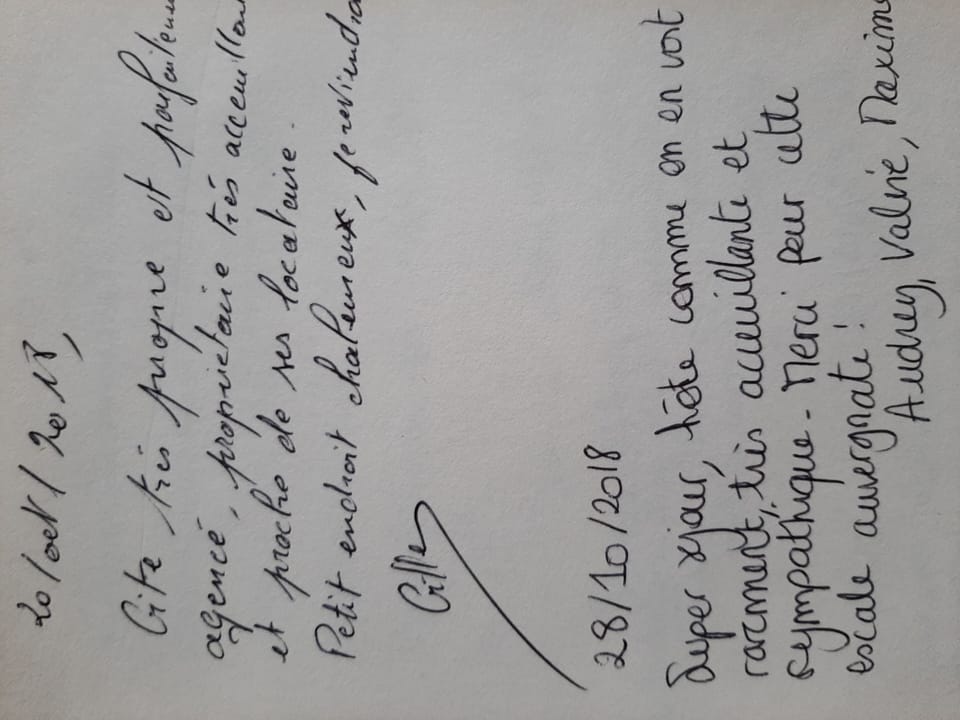 20/oct/2018,
Gite très propre et parfaitem
agencé, propriétaire très accueillan
et proche de ses locataire.
Petit endroit chaleureux, je reviendra
Gilles
28/10/2018
Super séjour, hôte comme on en voit
rarement, très acceuillante et
sympathique. Merci pour cette
escale auvergnate!
Audrey, Valérie, Maxime